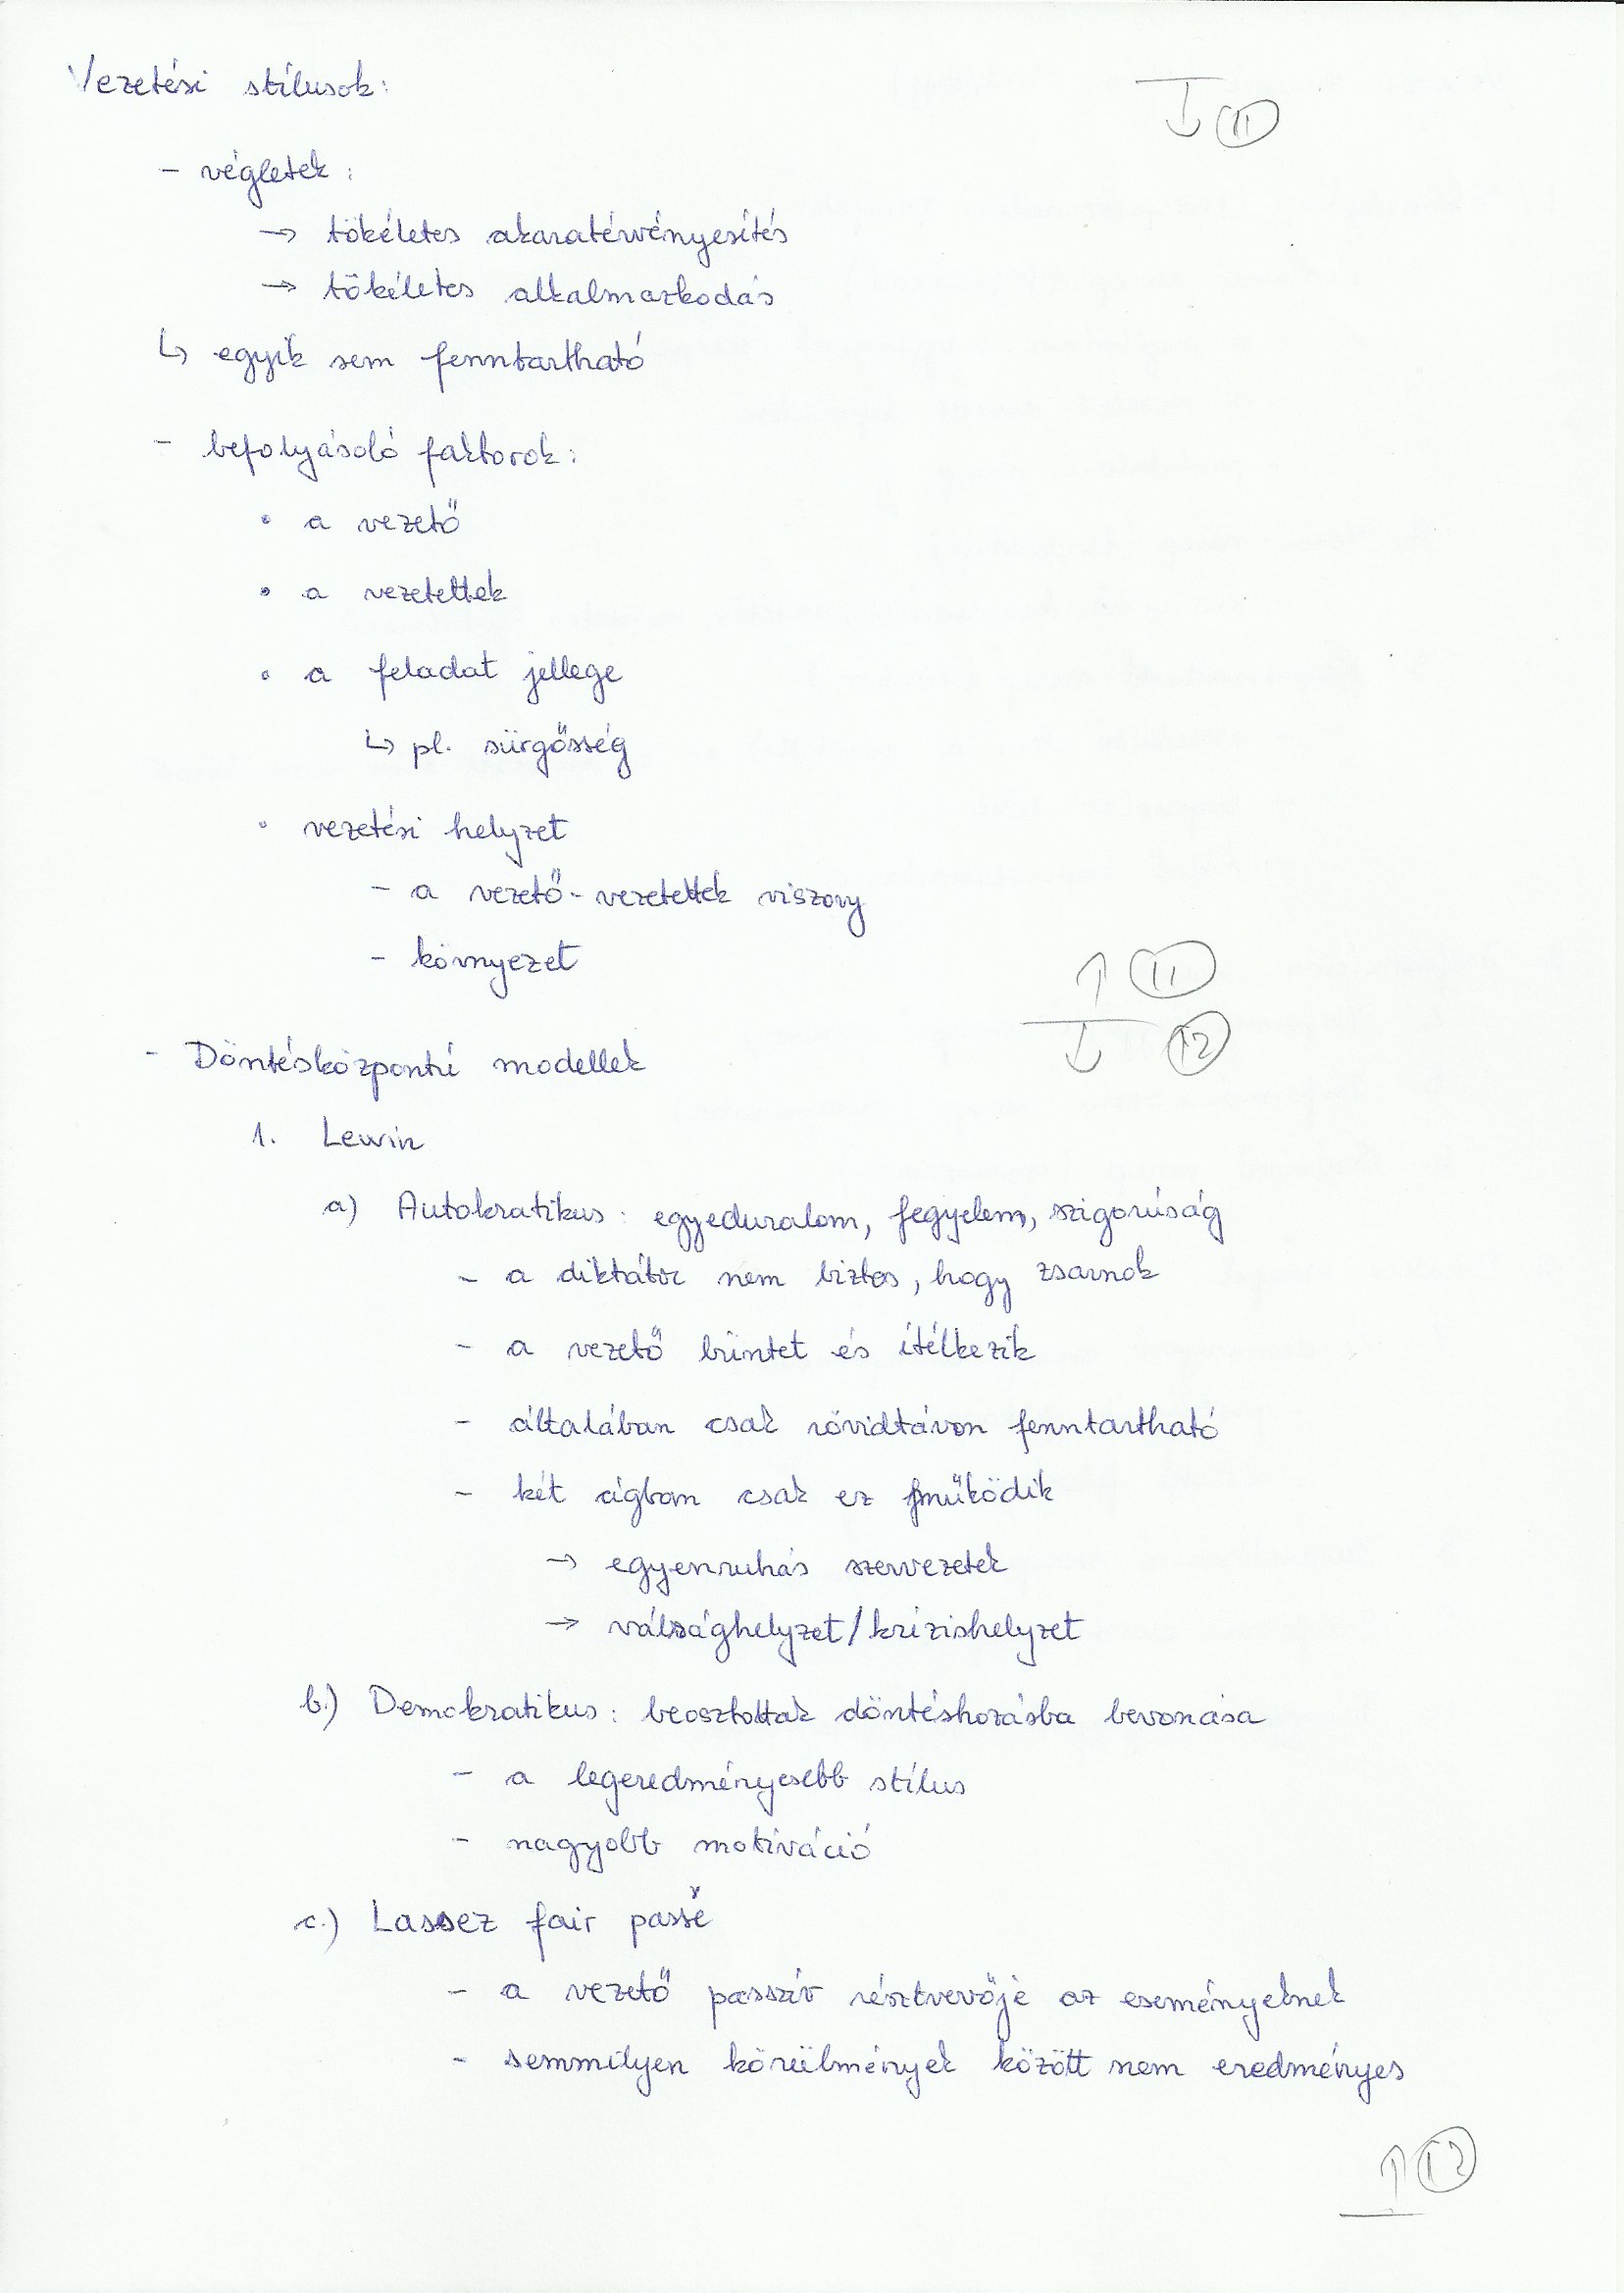 Vezetési stílusok:
↓ 11
- végletek:
→ tökéletes akaratérvényesítés
→ tökéletes alkalmazkodás
↳ egyik sem fenntartható
- befolyásoló faktorok:
• a vezető
• a vezetettek
• a feladat jellege
↳ pl. sürgősség
• vezetési helyzet
- a vezető-vezetettek viszony
- környezet
↑ 11
↓ 12
- Döntésközpontú modellek
1. Lewin
a) Autokratikus: egyeduralom, fegyelem, szigorúság
- a diktátor nem biztos, hogy zsarnok
- a vezető büntet és ítélkezik
- általában csak rövidtávon fenntartható
- két ágban csak ez működik
→ egyenruhás szervezetek
→ válsághelyzet/krízishelyzet
b.) Demokratikus: beosztottak döntéshozásba bevonása
- a legeredményesebb stílus
- nagyobb motiváció
c.) Lassez fair passé
- a vezető passzív résztvevője az eseményeknek
- semmilyen körülmények között nem eredményes
↑ 12